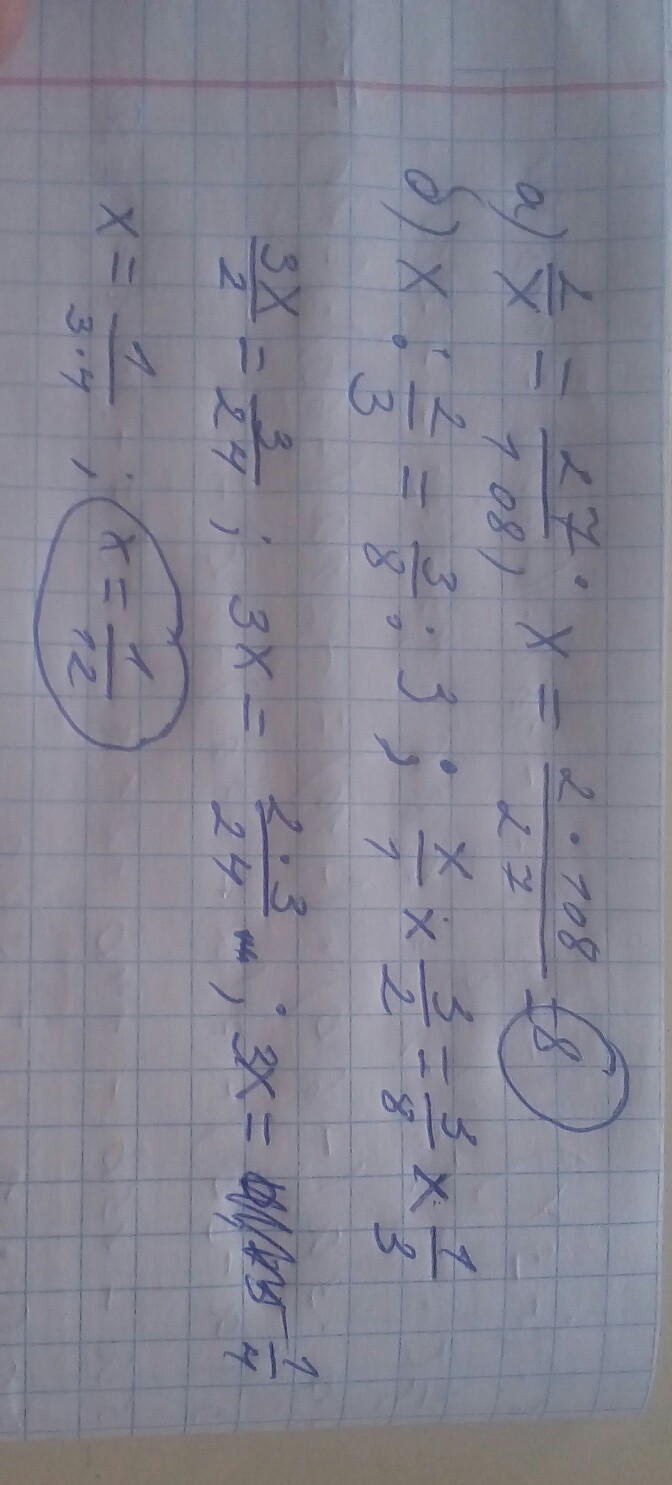 а) 2/x = 27/108; x = 2·108/27 = 8
б) x : 2/3 = 3/8 : 3; x/1 × 3/2 = 3/8 × 1/3
3x/2 = 3/24; 3x = 2·3/24; 3x = 1/4
x = 1/3·4; x = 1/12